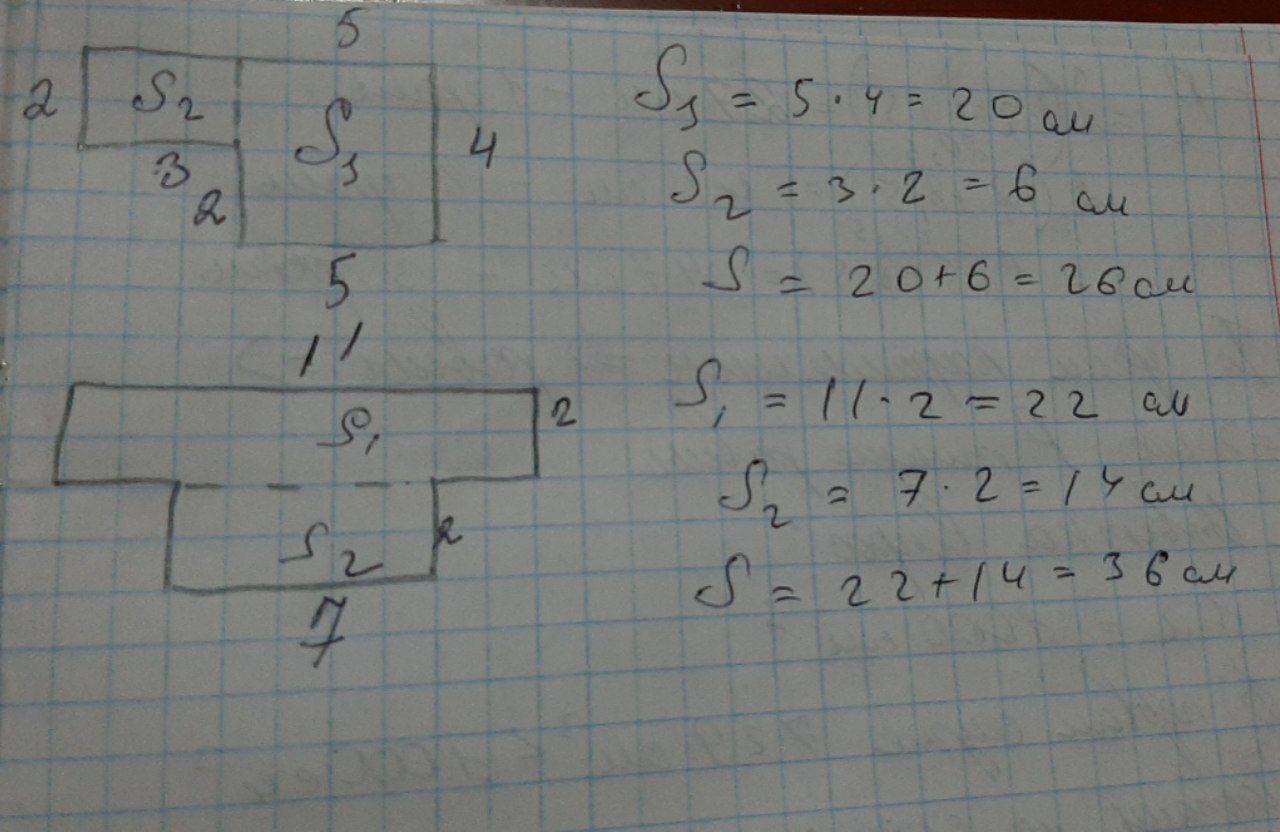 5
2 S₂ S₁ 4
3
2
5
S₁ = 5 · 4 = 20 см
S₂ = 3 · 2 = 6 см
S = 20+6 = 26 см
11
S₁ 2
S₂ 2
7
S₁ = 11 · 2 = 22 см
S₂ = 7 · 2 = 14 см
S = 22+14 = 36 см